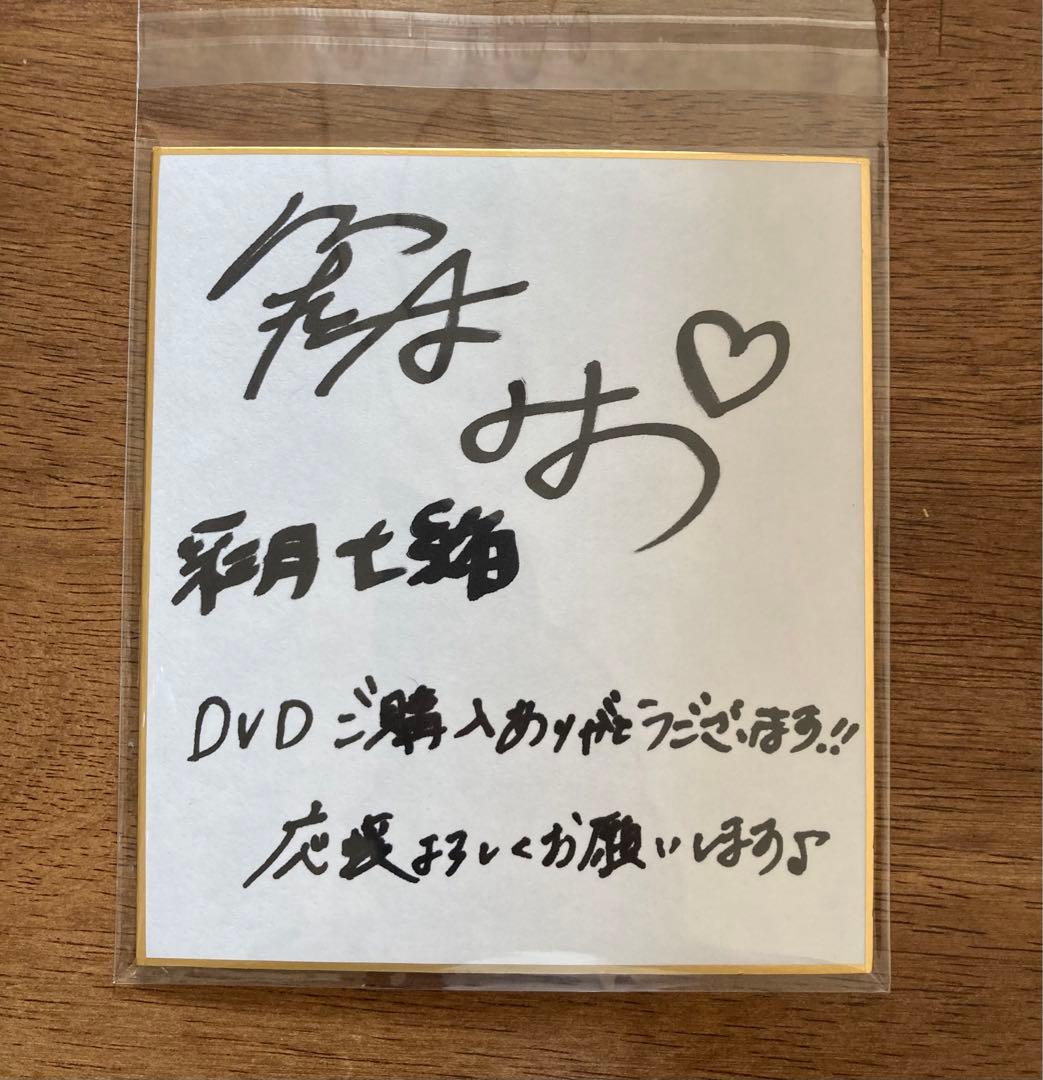 彩月七緒
DVDご購入ありがとうございます!!
応援よろしくお願いします♪